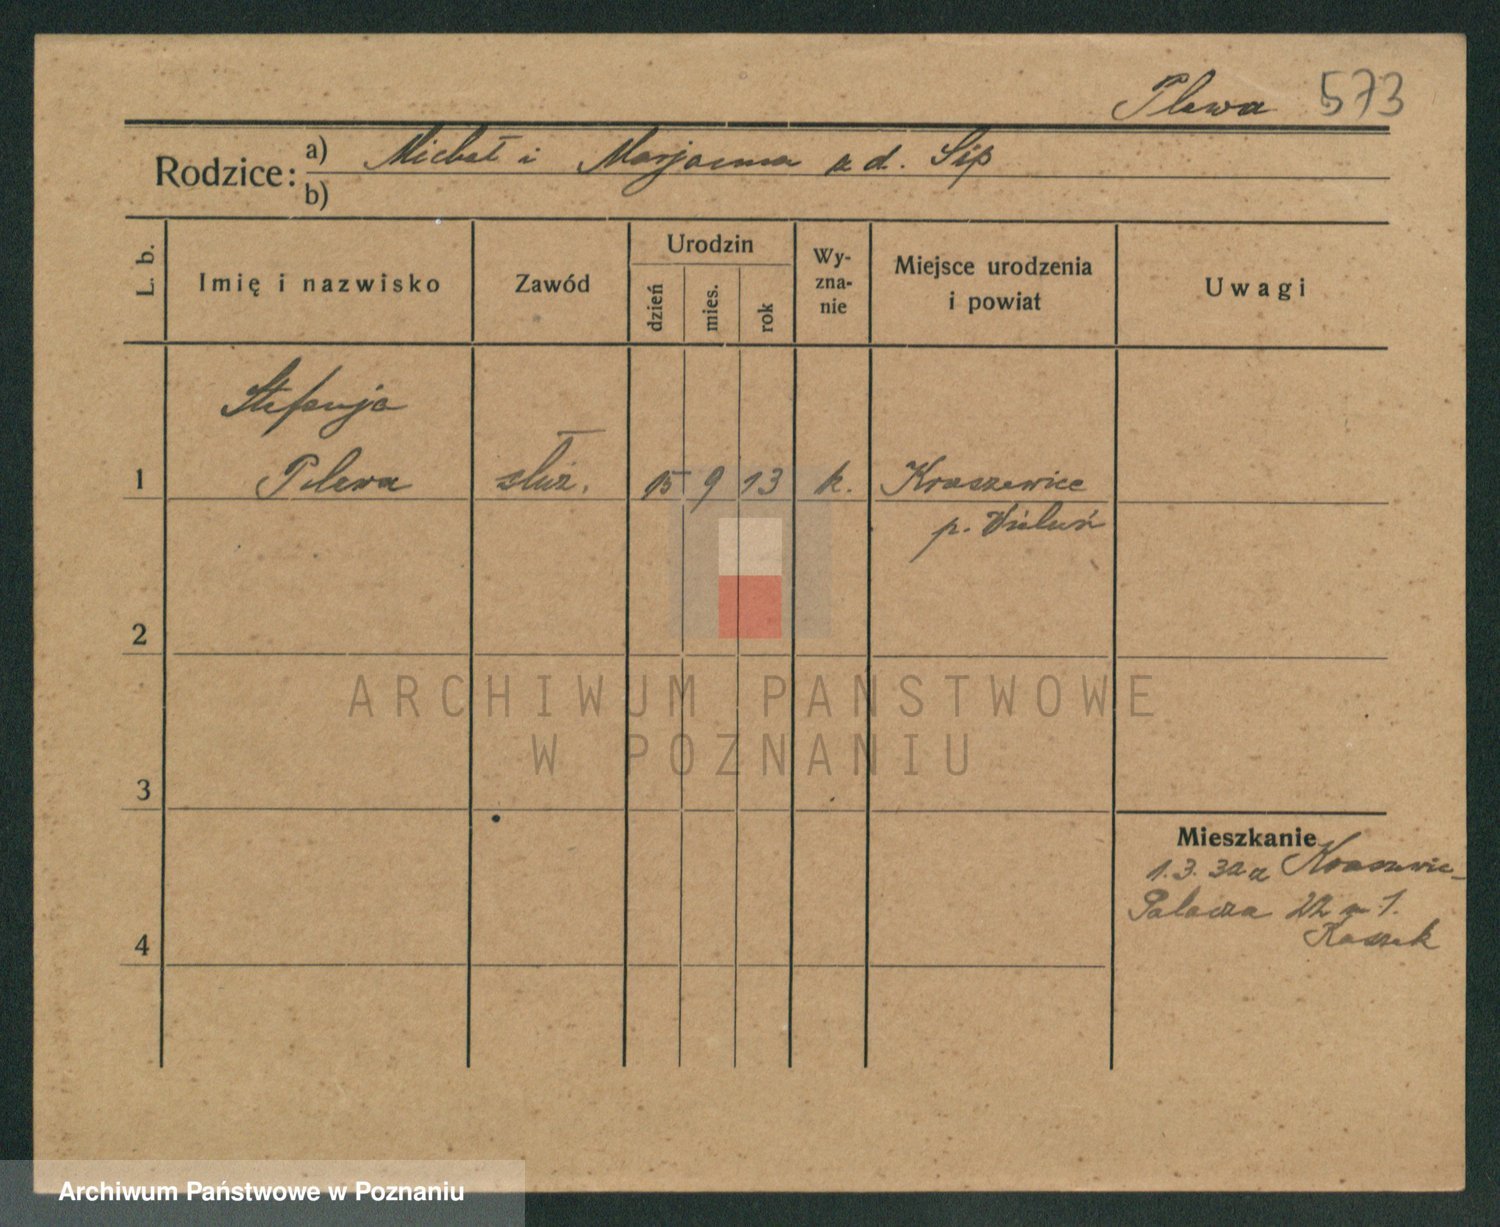 Plewa 573
Rodzice: a) Michał i Marjanna z d. Sip
b)
L. b.
Imię i nazwisko
Zawód
Urodzin
dzień
mies.
rok
Wy-
zna-
nie
Miejsce urodzenia
i powiat
Uwagi
Stefanja
1 Plewa służ. 15 9 13 k. Kraszewice
p. Wieluń
2
ARCHIWUM PAŃSTWOWE
W POZNANIU
3
Mieszkanie
1.3.32 z Kraszewic
Palacza 22 m 1.
Kaszuk
4
Archiwum Państwowe w Poznaniu